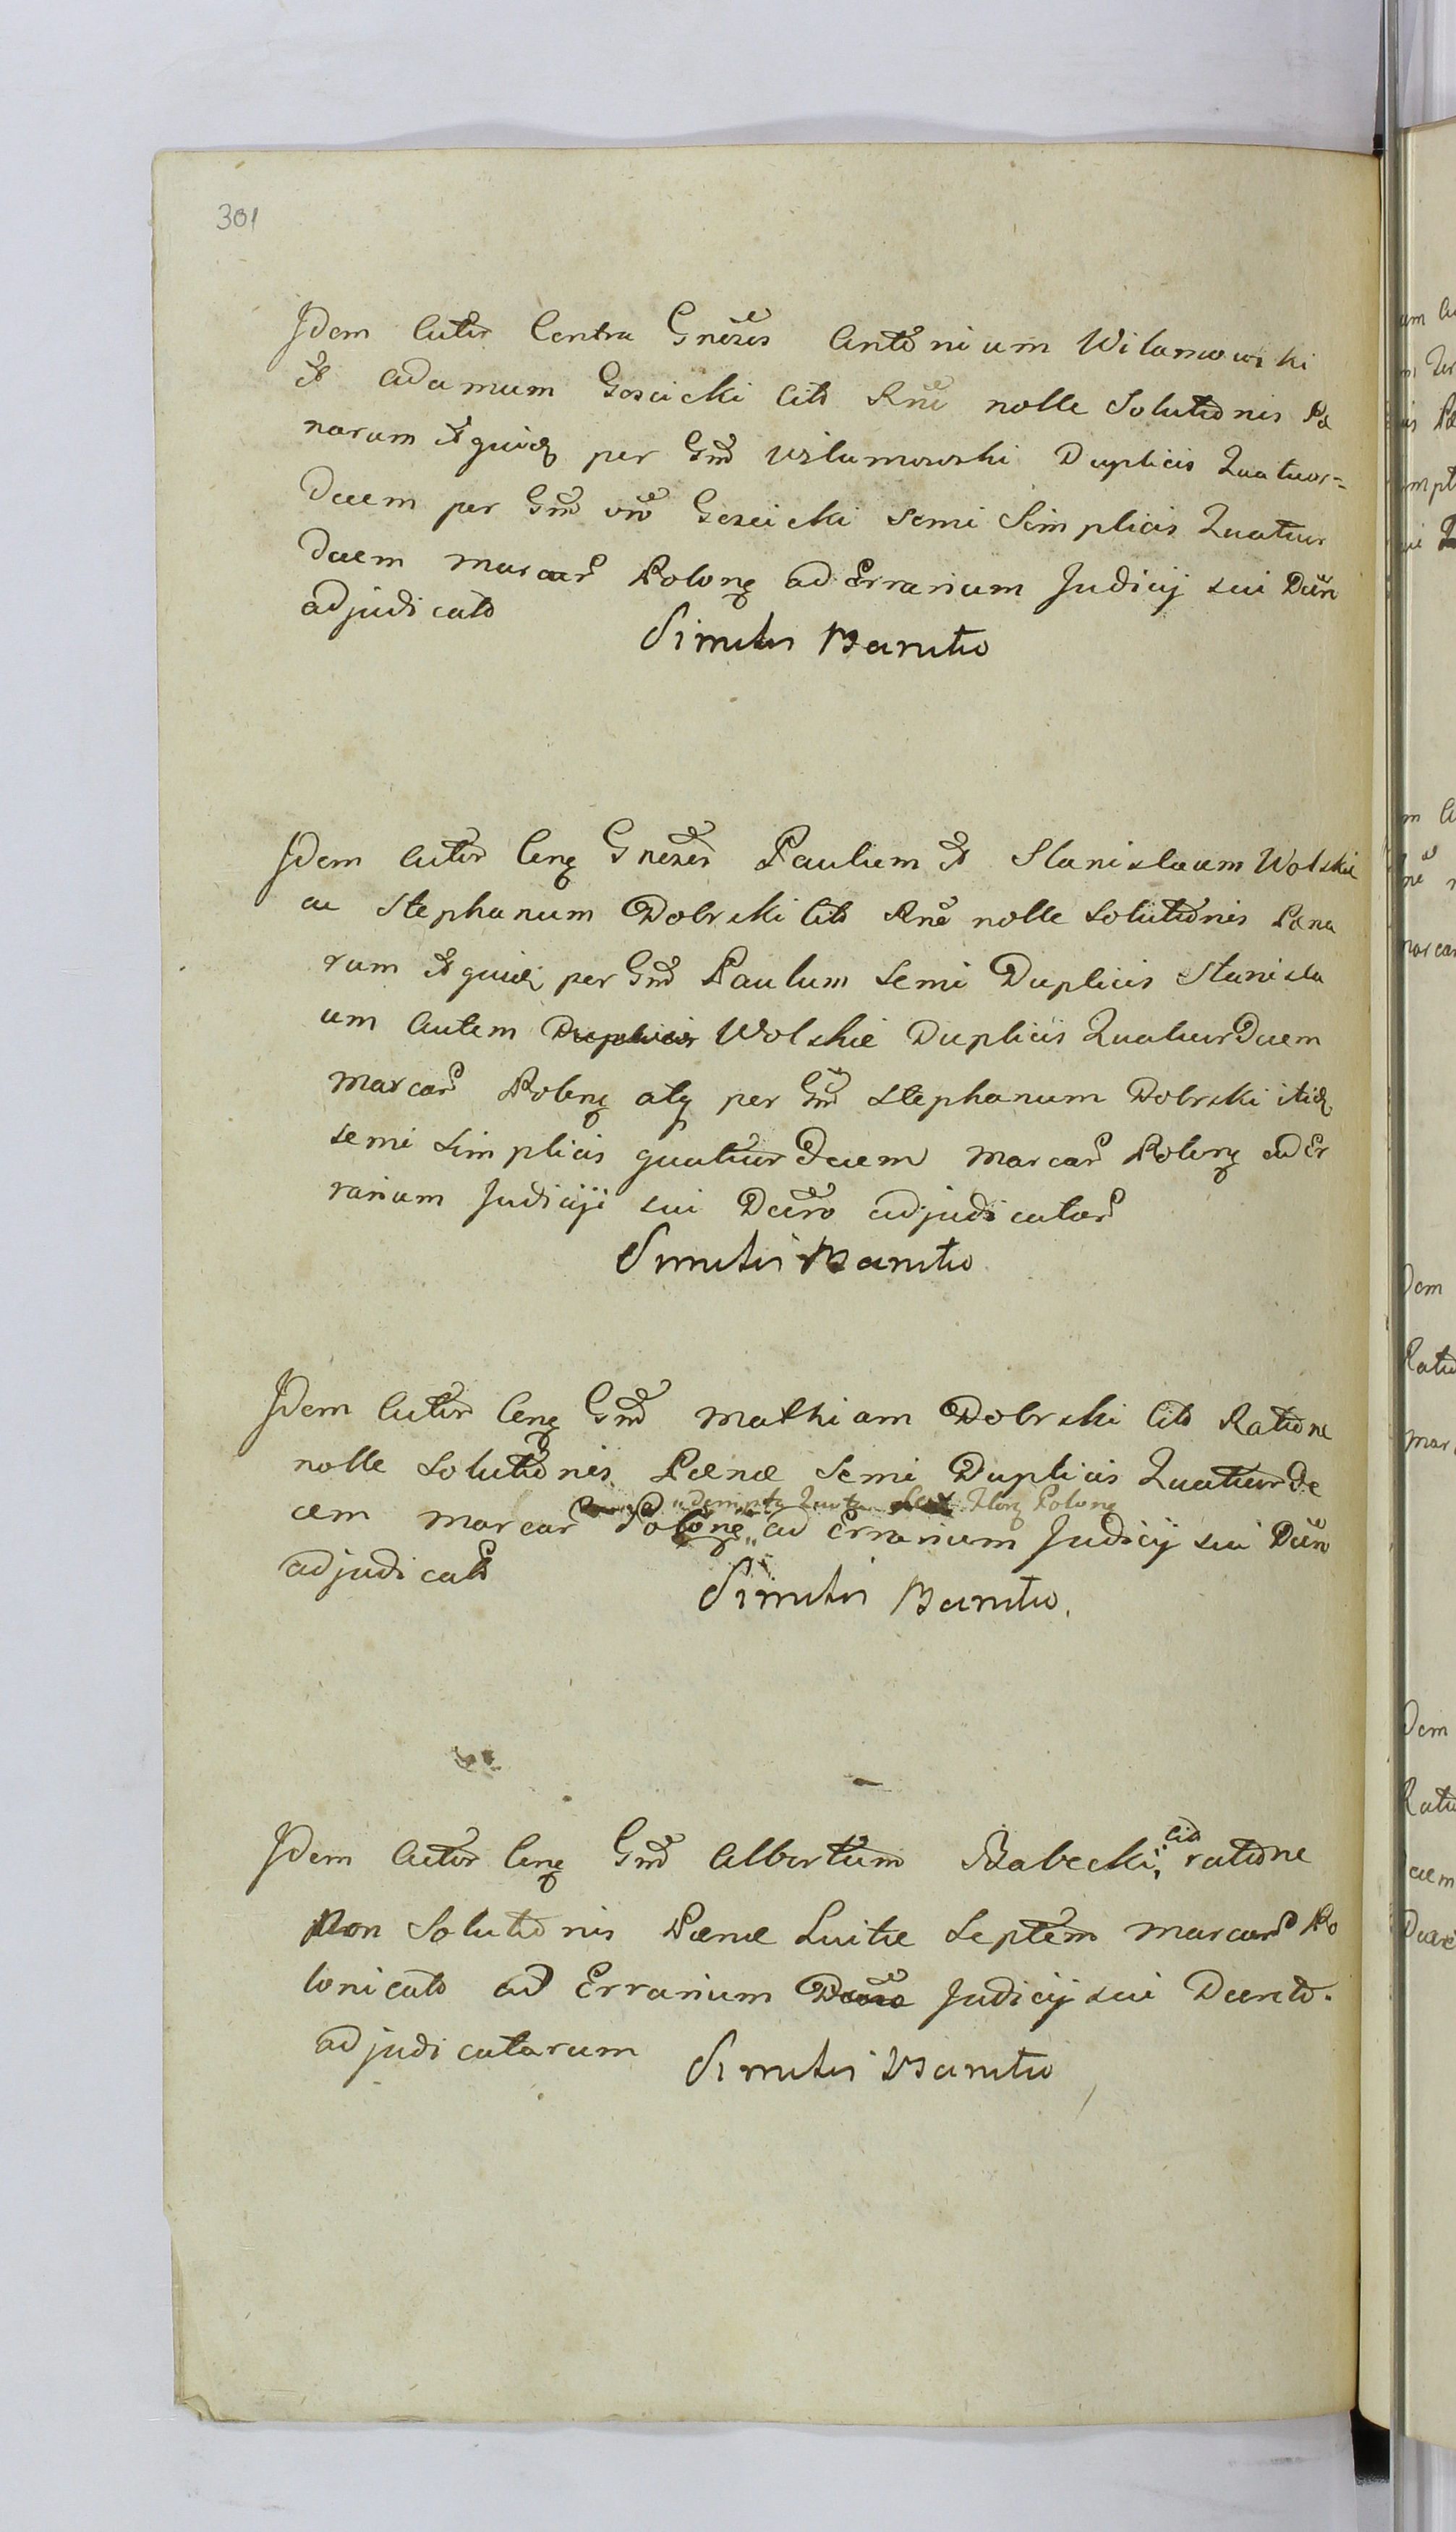 301
Idem Actor Contra Gnosos Antonium Wilamowski
et Adamum Goscicki Citos Rne nolle Solutionis Pæ
narum et quidẽ per Gnd Wilamowski Duplicis Quatuor=
decem per Gnd vero Goscicki semi Simplicis Quatuor
decem marcarũ Polonq ad Errarium Judicij sui Decr
adjudicato
Similis Banitio
Idem Actor Conq Gnosos Paulum et Stanislaum Wolskie
ac Stephanum Dobrski Citos Rne nolle Solutionis Pæna
rum et quidẽ per Gnd Paulum Semi Duplicis Stanisla
um Autem Duplicis Wolskie Duplicis Quatuordecem
Marcarũ Polonq atq per Gnd Stephanum Dobrski itidẽ
semi Simplicis quatuordecem Marcarũ Polonq ad Er
rarium Judiciji sui Decro adjudicatarũ
Similis Banitio
Idem Actor Conq Gnd Mathiam Dobrski Cito Ratione
nolle Solutionis Pænæ Semi Duplicis Quatuorde
cem marcarũ Polonq ad Errarium Judicij sui Decr
adjudicatã
Similis Banitio.
Idem Actor Conq Gnd Albertum Babecki, Cito ratione
Non Solutionis Pænæ Luitæ Septem marcarũ Po
lonicalo ad Errarium Decro Judicij sui Decreto.
adjudicatarum
Similis Banitio